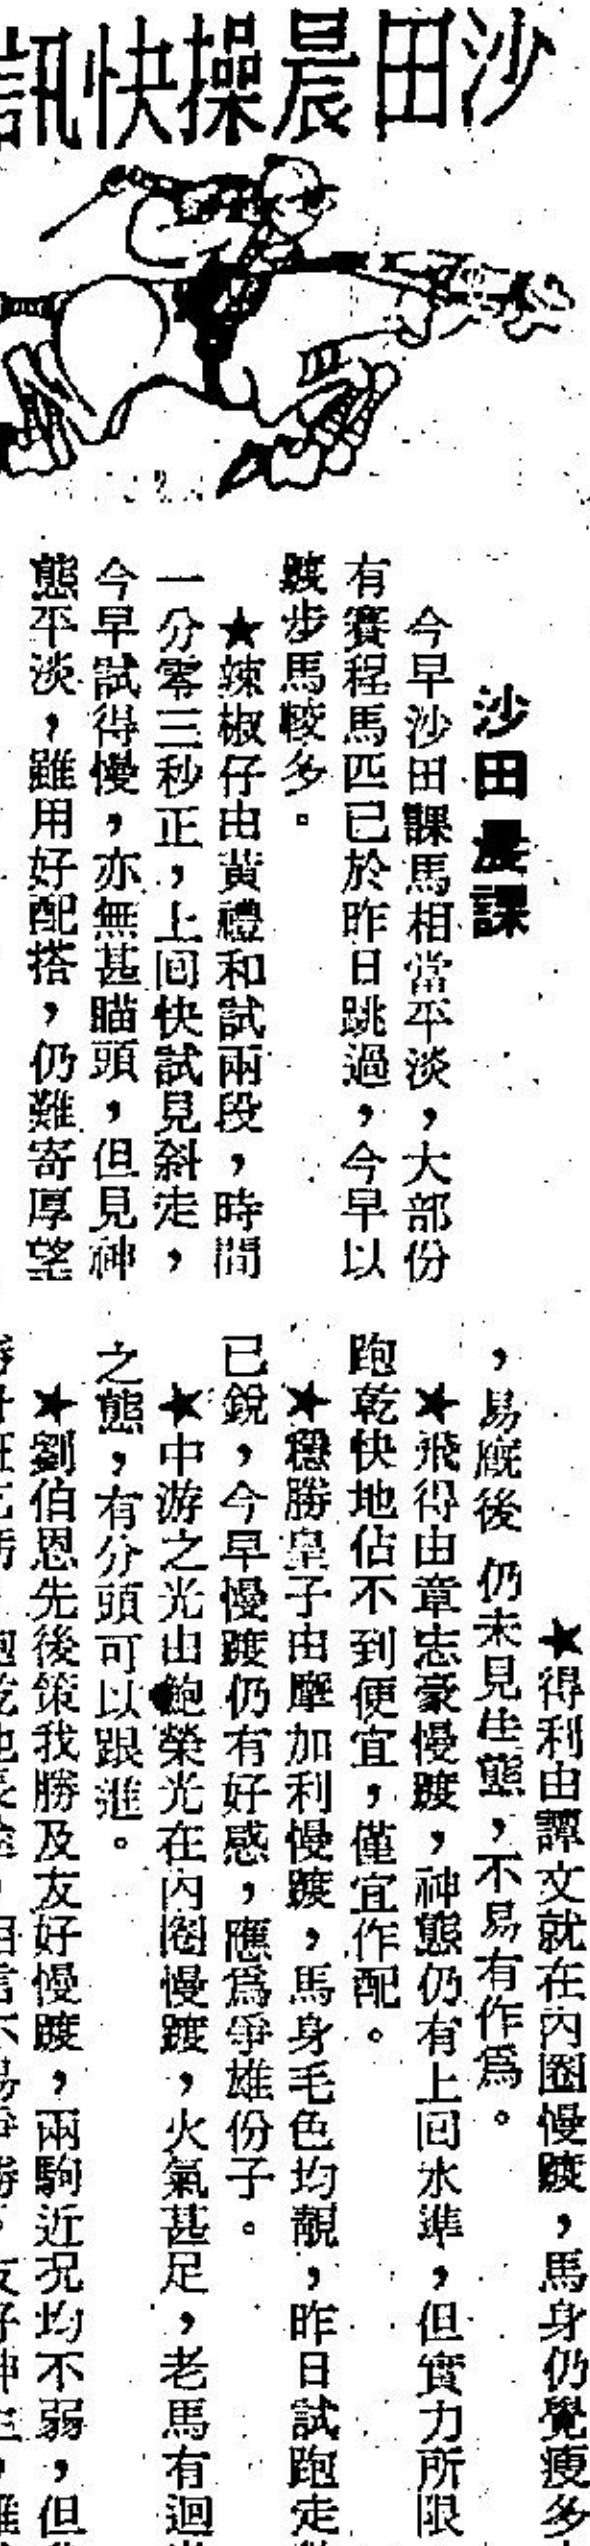 沙田晨操快訊
沙田晨課
今早沙田課馬相當平淡，大部份
有賽程馬匹已於昨日跳過，今早以
踱步馬較多。
★辣椒仔由黃禮和試兩段，時間
一分零三秒正，上回快試見斜走，
今早試得慢，亦無甚瞄頭，但見神
態平淡，雖用好配搭，仍難寄厚望
★得利由譚文就在內圈慢踱，馬身仍覺瘦多
，易廐後仍未見佳態，不易有作爲。
★飛得由章志豪慢踱，神態仍有上回水準，但實力所限
跑乾快地佔不到便宜，僅宜作配。
★穩勝皇子由摩加利慢踱，馬身毛色均靚，昨日試跑走
已銳，今早慢踱仍有好感，應爲爭雄份子。
★中游之光由鮑榮光在內圈慢踱，火氣甚足，老馬有迴
之態，有分頭可以跟進。
★劉伯恩先後策我勝及友好慢踱，兩駒近況均不弱，但